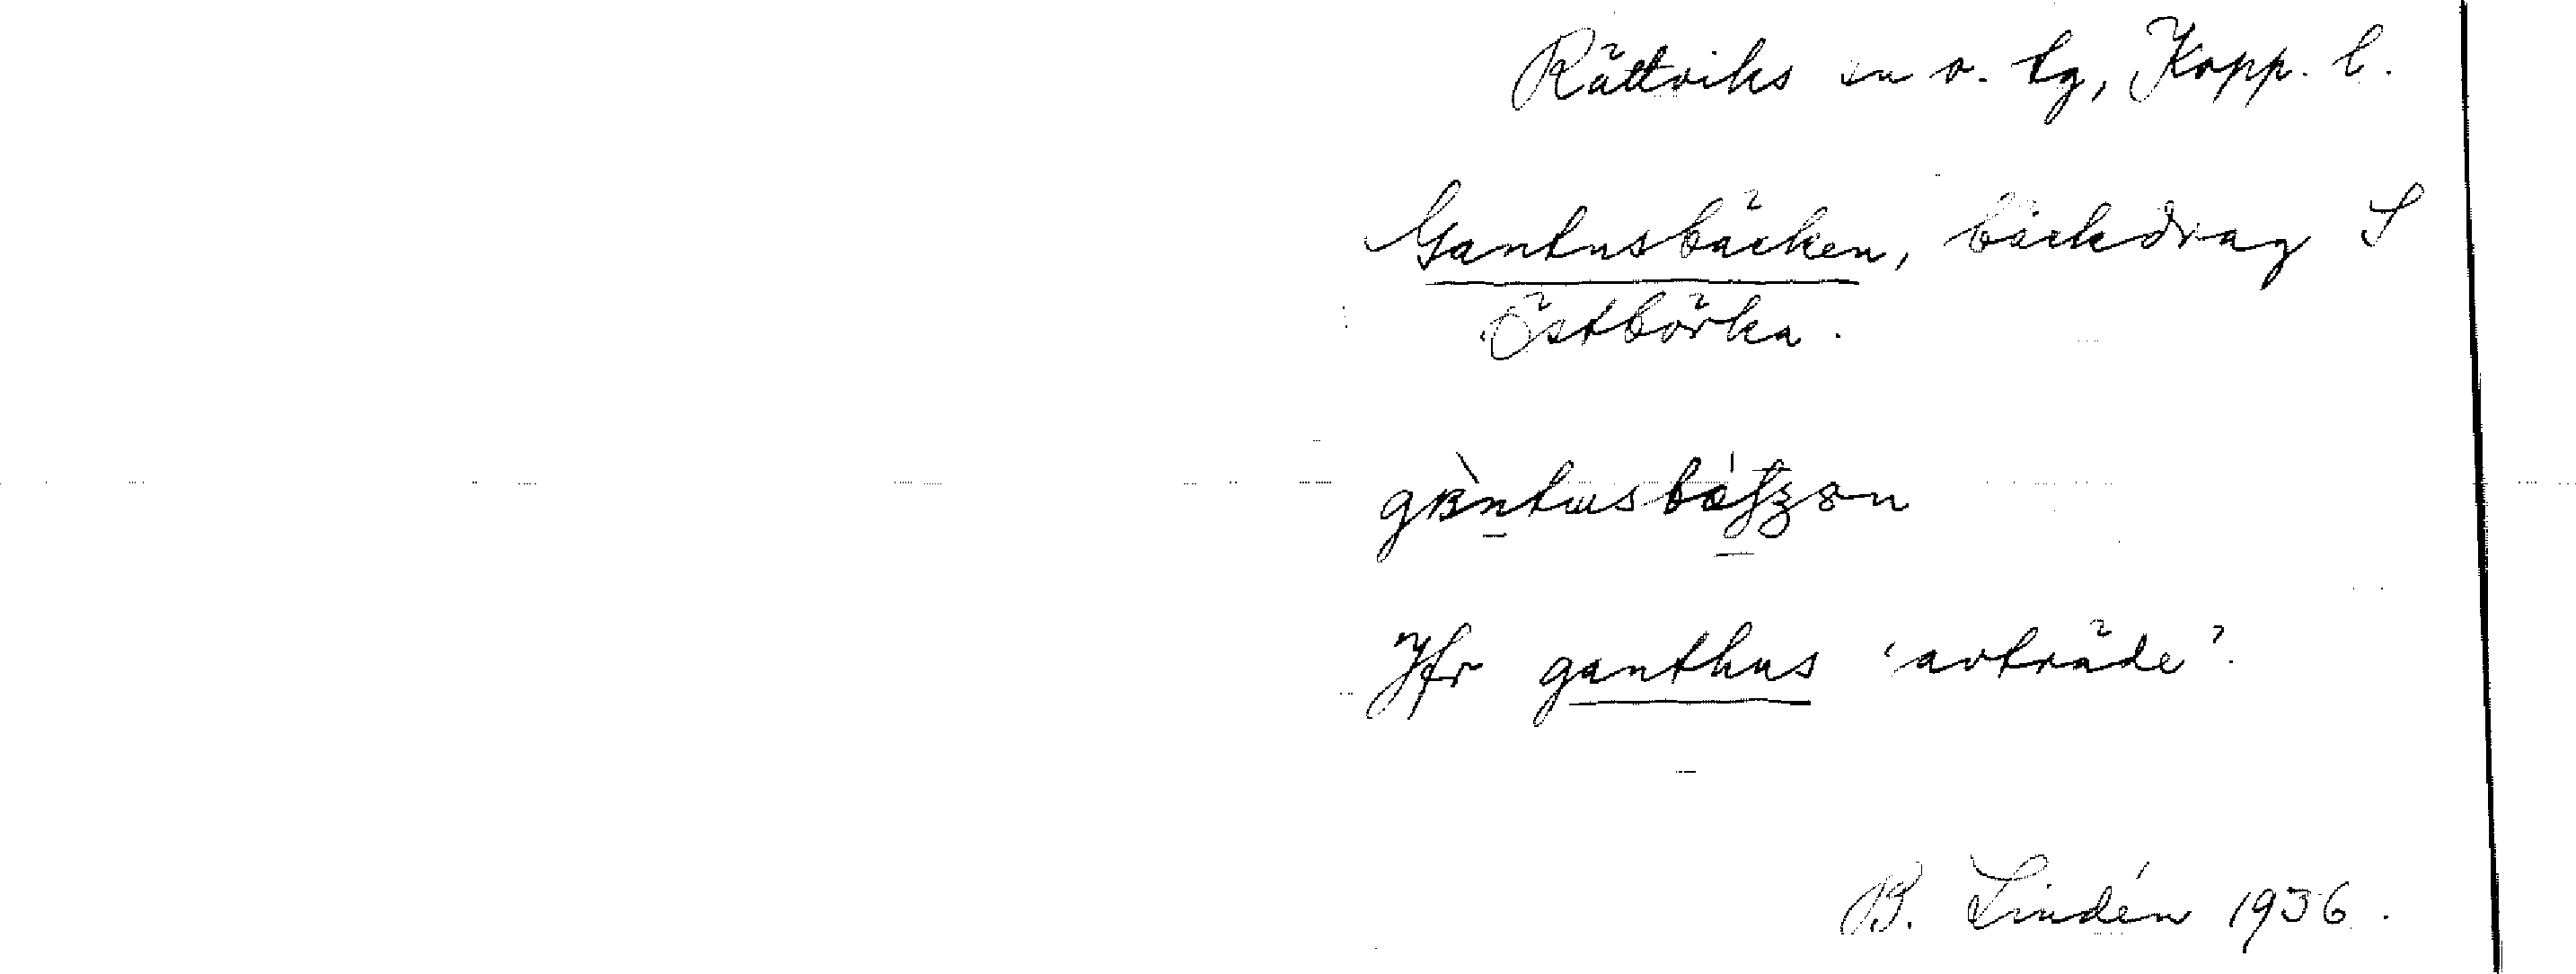 Rättviks sn o. tg, Kopp. l.
Gantusbäcken, bäckdrag S
Östbörka.
Jfr ganthus 'avträde'.
B. Lindén 1936.